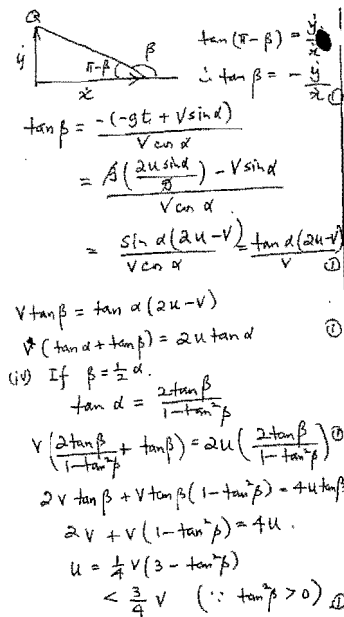 Q
ẏ
π-β
β
ẋ
tan (π - β) = ẏ/ẋ
∴ tan β = - ẏ/ẋ ①
tan β = -(-gt + V sin α) / V cos α
= g(2u sin α / g) - V sin α / V cos α
= sin α (2u - V) / V cos α = tan α (2u - V) / V ①
V tan β = tan α (2u - V)
V (tan α + tan β) = 2u tan α ①
(iv) If β = ½ α.
tan α = 2 tan β / 1 - tan² β
V (2 tan β / 1 - tan² β + tan β) = 2u (2 tan β / 1 - tan² β) ①
2V tan β + V tan β (1 - tan² β) = 4u tan β
2V + V (1 - tan² β) = 4u.
u = ¼ V (3 - tan² β)
< ¾ V (∵ tan² β > 0) ①